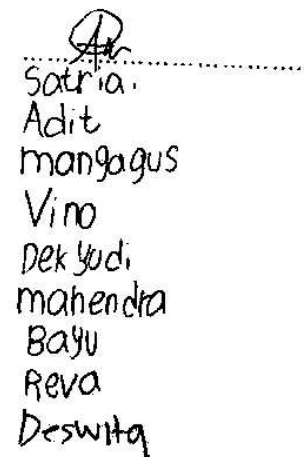 Satria.
Adit
mangagus
Vino
Dek Yudi
mahendra
Bayu
Reva
Deswita